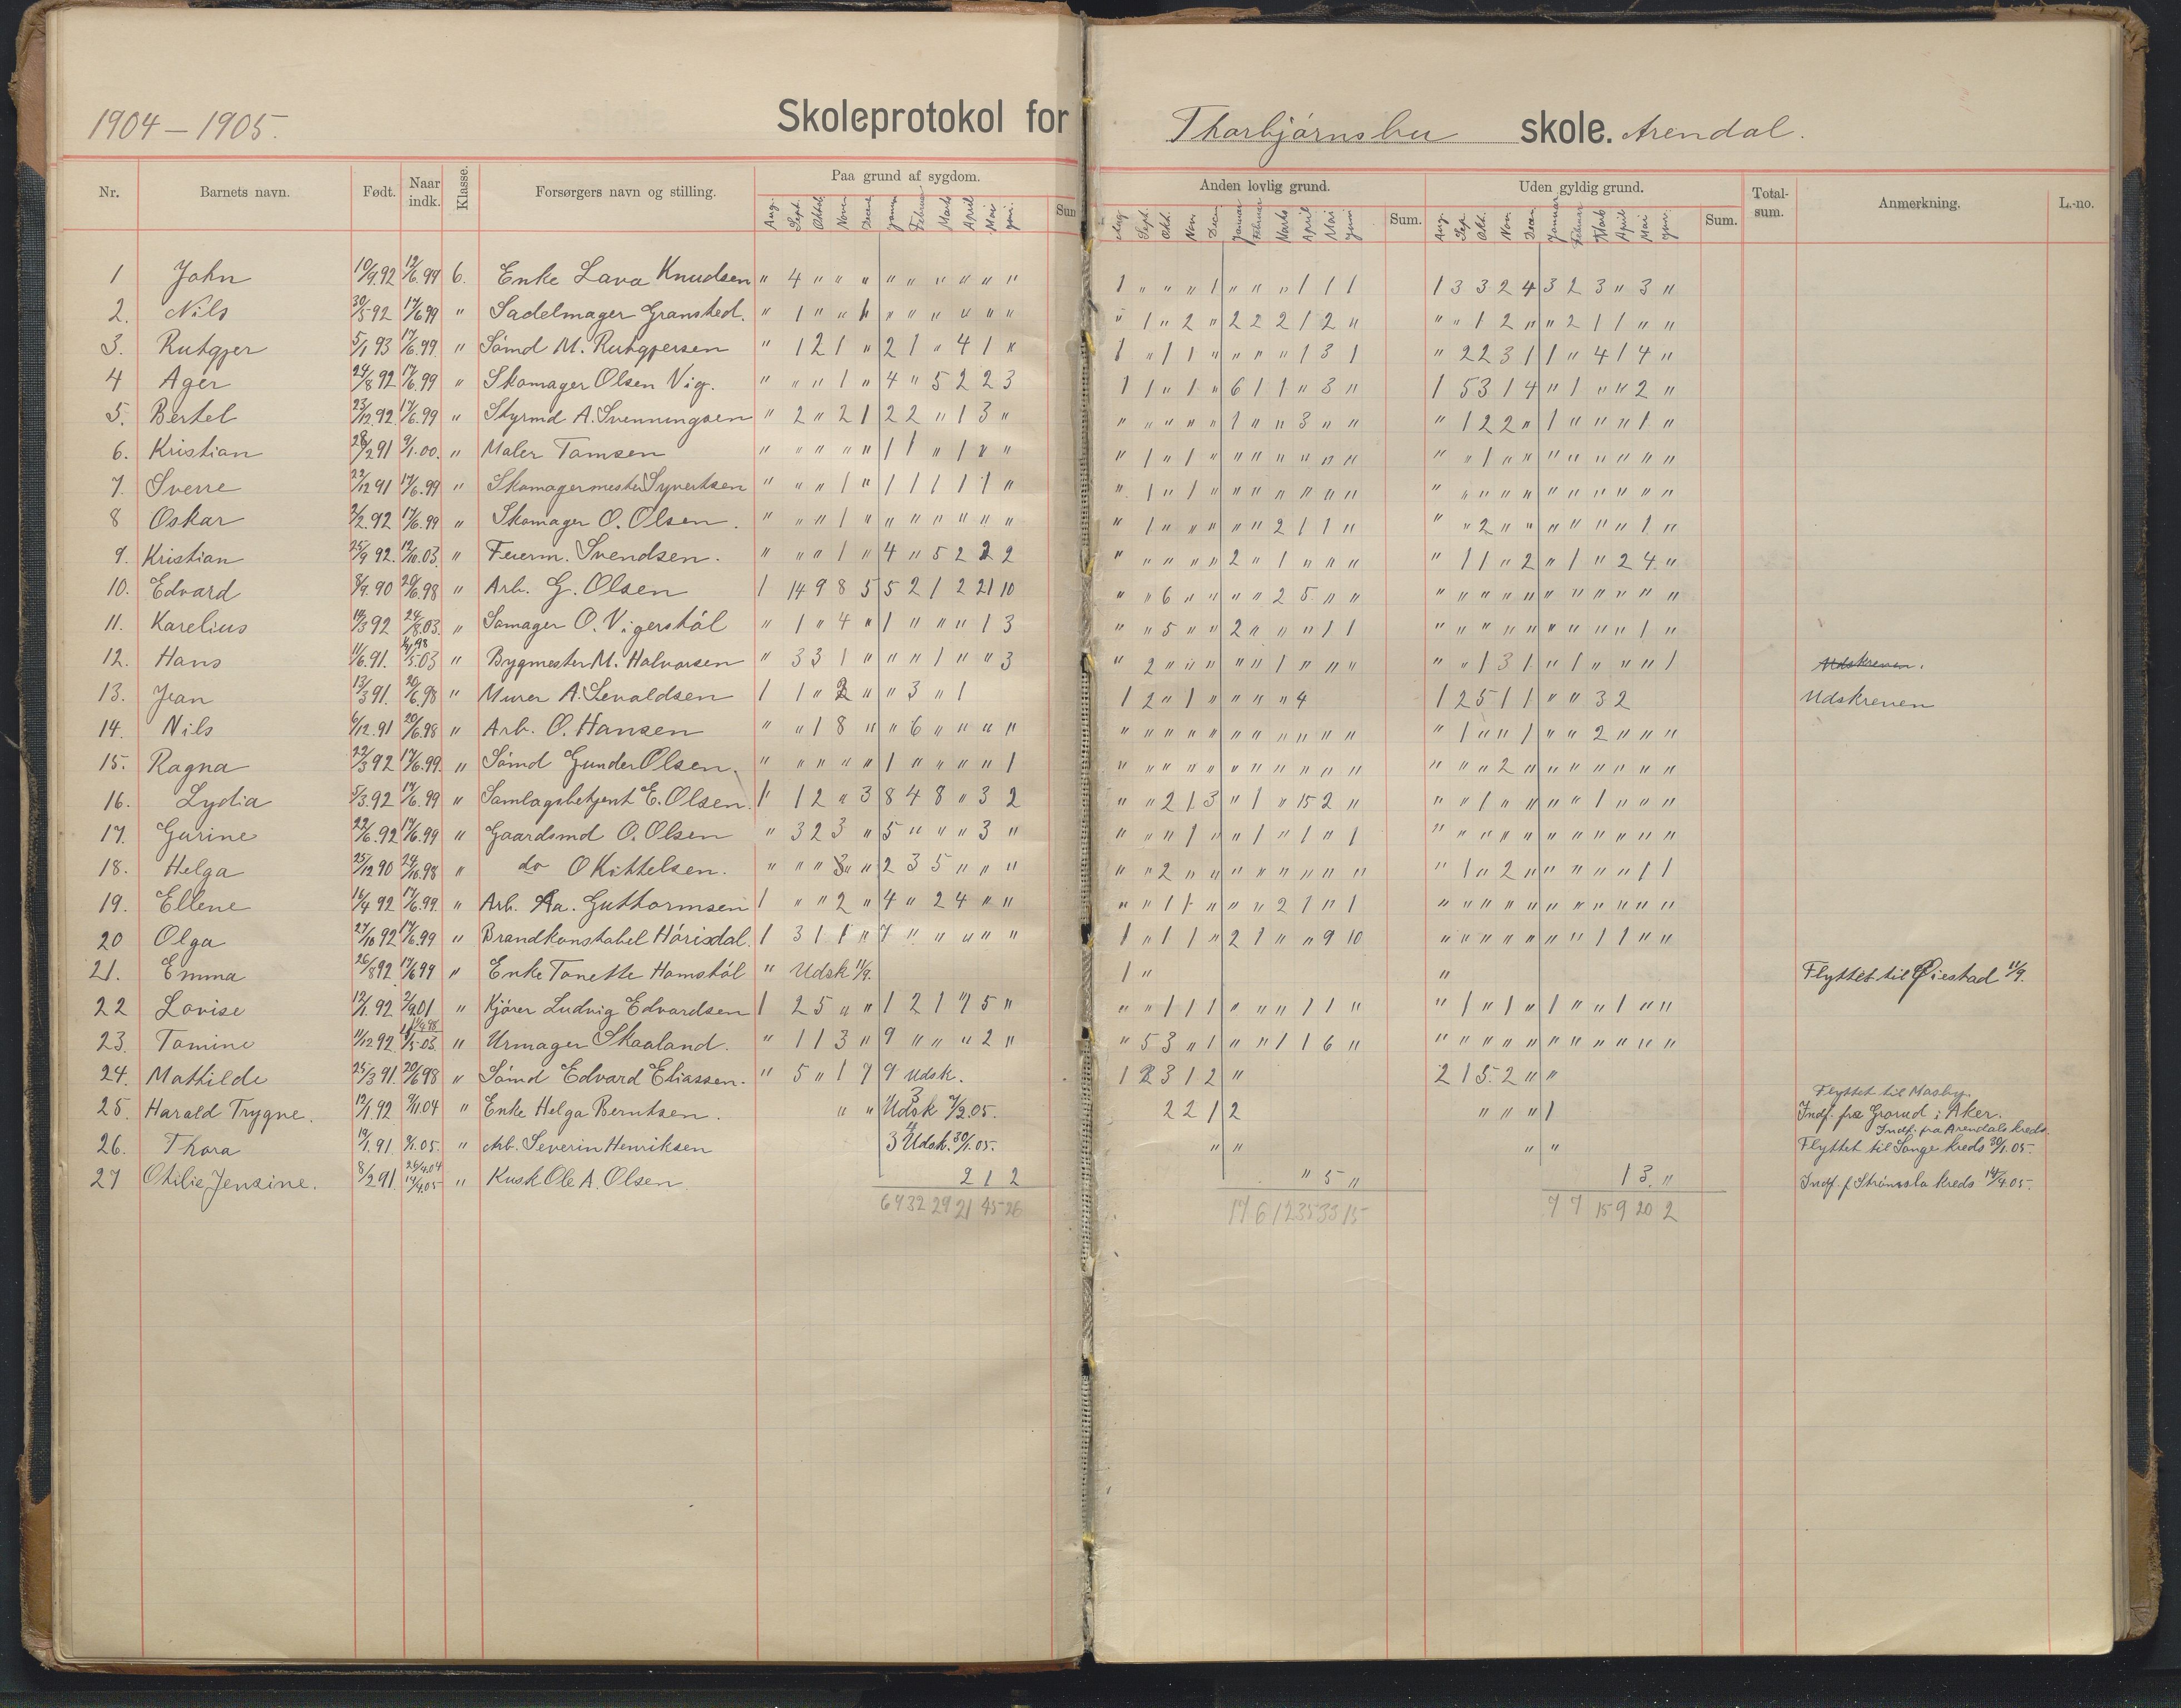 1904 – 1905.
Skoleprotokol for Thorbjørnsbu skole. Arendal.
Nr. Barnets navn. Født. Naar indk. Klasse. Forsørgers navn og stilling. Paa grund af sygdom. Sum Anden lovlig grund. Sum. Uden gyldig grund. Sum. Total-sum. Anmerkning. L.-no.
Aug. Sept. Oktob Novem Decem Januar Februar Marts April Mai Juni. Aug. Sept. Okt. Nov Decem Januar Februar Marts April Mai Juni Aug. Sep. Okt. Nov Decem Januar Februar Mark April Mai Juni.
1 John 10/9.92 12/6.99 6. Enke Lava Knudsen " 4 " " " " " " " " " 1 " " " 1 " " " 1 1 1 1 3 3 2 4 3 2 3 " 3 "
2. Nils 30/5 92 17/6 99 " Sadelmager Gransted. " 1 " " 1 " " " " " " " 1 " 2 " 2 2 2 1 2 " " " 1 2 " " 2 1 1 " "
3. Rutgjer 5/1 93 17/6.99. " Sømd M. Rutgjersen " 1 2 1 " 2 1 " 4 1 " 1 " 1 1 " " " " 1 3 1 " 2 2 3 1 1 " 4 1 4 "
4 Ager 24/8 92 17/6.99 " Skomager Olsen Vig. " " " 1 " 4 " 5 2 2 3 1 1 " 1 " 6 1 1 " 3 " 1 5 3 1 4 " 1 " " 2 "
5. Bertel 23/12.92. 17/6.99 " Styrmd A. Svenningsen " 2 " 2 1 2 2 " 1 3 " " " " " " 1 " " 3 " " " 1 2 2 " 1 " " " 1 "
6. Kristian 28/2 91 9/1.00. " Maler Tamsen " " " " " 1 1 " 1 " " " 1 " 1 " " " " " " " " " 1 " " " " " " " "
7. Sverre 22/12 91 17/6.99 " Skomagermester Syvertsen " " " 1 " 1 1 1 1 1 " " 1 " 1 " " " " " " " " " " " " " " " " " "
8 Oskar 2/2.92 17/6.99 " Skomager O. Olsen. " " " 1 " " " " " " " " 1 " " " " " 2 1 1 " " " 2 " " " " " " 1 "
9. Kristian 25/9 92. 12/10.03. " Feierm. Svendsen. " " " 1 " 4 " 5 2 2 2 " " " " " 2 " 1 " " " " 1 1 " 2 " 1 " 2 4. "
10. Edvard 8/9.90 20/6.98 " Arb. G. Olsen 1 14 9 8 5 5 2 1 2 21 10 " " 6 " " " " 2 5 " " " " " " " " " " " " "
11. Karelius 14/3 92 24/8.03. " Somager O. Vigerstøl " 1 " 4 " 1 " " " 1 3 " " 5 " " 2 " " " 1 1 " " " " " " " " " 1 "
12. Hans 11/6.91. 5.03 " Bygmester M. Halvorsen " 3 3 1 " " " 1 " " 3 " 2 " " " " " 1 " " " " " 1 3 1 " 1 " " " 1 Udskreven.
13. Jean 13/3 91. 20/6.98 " Murer A. Levaldsen 1 1 " 2 " " 3 " 1 1 2 " 1 " " " " 4 1 2 5 1 1 " " 3 2 Udskreven
14. Nils 6/12.91 20/6.98 " Arb. O. Hansen " " 1 8 " " 6 " " " " " " " " " " " " " " " " 1 " " 1 " " 2 " " "
15. Ragna 22/3 92 17/6.99. " Sømd Gunder Olsen. " " " " " 1 " " " " 1 " " " " " " " " " " " " " " 2 " " " " " " "
16. Lydia 5/3.92 17/6.99 " Samlagsbetjent E. Olsen. 1 1 2 " 3 8 4 8 " 3 2 " " 2 1 3 " 1 " 15 2 " " " 1 " " " " 1 " " "
17. Gurine 22/6.92 17/6.99 " Gaardsmd O. Olsen " 3 2 3 " 5 " " " 3 " " " " 1 " " 1 " 1 " 1 " " " " " " " " " " "
18. Helga 25/12 90 24/10.98 " do O Kittelsen. " " " 3 " 2 3 5 " " " " " 2 " " " " " " " " " 1 " 2 " " " " " 1 1
19. Ellene 16/4 92 17/6.99. " Arb. Aa. Guttormsen 1 " " 2 " 4 " 2 4 " " " " 1 1 " " " 2 1 " 1 " " " " " " " " " " "
20 Olga 27/10 92 17/6.99 " Brandkonstabel Hørisdal. 1 3 1 1 " 7 " " " " " 1 " 1 1 " 2 1 " " 9 10 " " " " " " " 1 1 " "
21. Emma 26/8 92 17/6 99 " Enke Tonette Homstøl " Udsk 11/9. 1 " " Flyttet til Øiestad 11/9.
22 Lovise 12/1.92 2/9.01 " Kjører Ludvig Edvardsen 1 2 5 " " 1 2 1 7 5 " " " 1 1 1 " " " 1 1 " " 1 " 1 " 1 " " 1 " "
23. Tomine 11/12 92. 5.03. " Urmager Skaaland. " 1 1 3 " 9 " " " 2 " " 5 3 " 1 " " 1 1 6 " " " " " " " " " " " "
24. Mathilde 25/3 91. 20/6 98 " Sømd Edvard Eliassen. " 5 " 1 7 9 Udsk. 1 2 3 1 2 " 2 1 5 2 " "
25. Harald Trygve. 12/1.92 2/11.04 " Enke Helga Berntsen. " " 3 Udsk 7/2.05. 2 2 1 2 " " " 1 Flyttet til Mosby.
Indf. fra Grorud i Aker.
26. Thora 19/1.91 9/1.05. " Arb. Severin Henriksen 3 4 Udsk. 30/1.05. " " " " Indf. fra Arendals kreds.
Flyttet til Songe kreds 30/1.05.
27 Otilie Jenzine. 8/2 91. 25/4.04 14/4.05 " Kusk Ole A. Olsen. 2 1 2 " 5 " 1 3. " Indf. f. Strømsbo kreds 14/4.05.
64 32 29 21 45 26 17 6 12 35 33 15 7 7 15 9 20 2